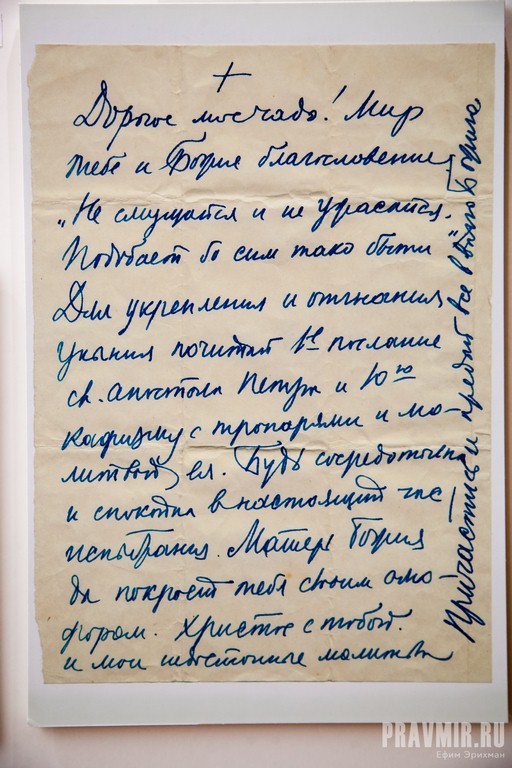 +
Дорогое мое чадо! Мир
тебе и Божие благословение,
„Не смущайся и не ужасайся.
Подобает бо сим тако быти"
Для укрепления и отгнания
уныния почитай 1е послание
св. апостола Петра и 10ю
кафизму с тропарями и мо-
литвой ея. Будь сосредоточена
и спокойна в настоящий час
испытрания. Матерь Божия
да покроет тебя своим омо-
фором. Христос с тобой.
и мои недостойные молитвы
Причастись и предай все в волю Божию
PRAVMIR.RU
Ефим Эрихман